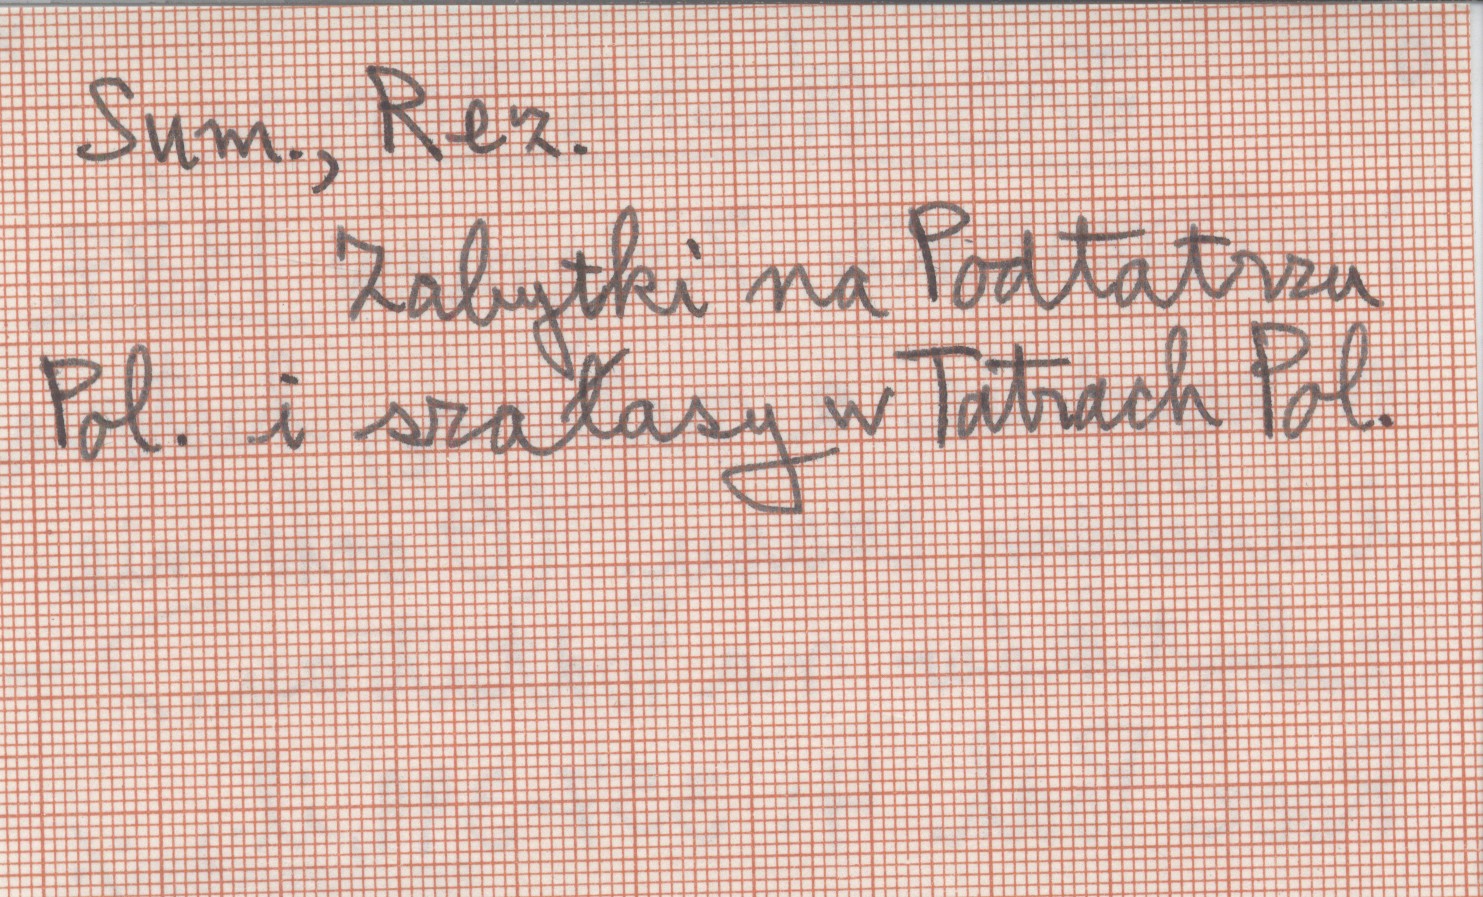 Sum., Rez.
Zabytki na Podtatrzu
Pol. i szałasy w Tatrach Pol.